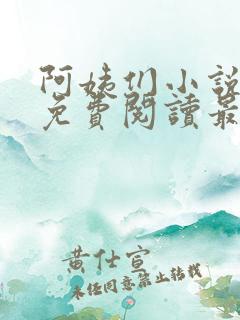 阿姨们小説
免費閱讀最
黄仕宣
未经同意禁止转载